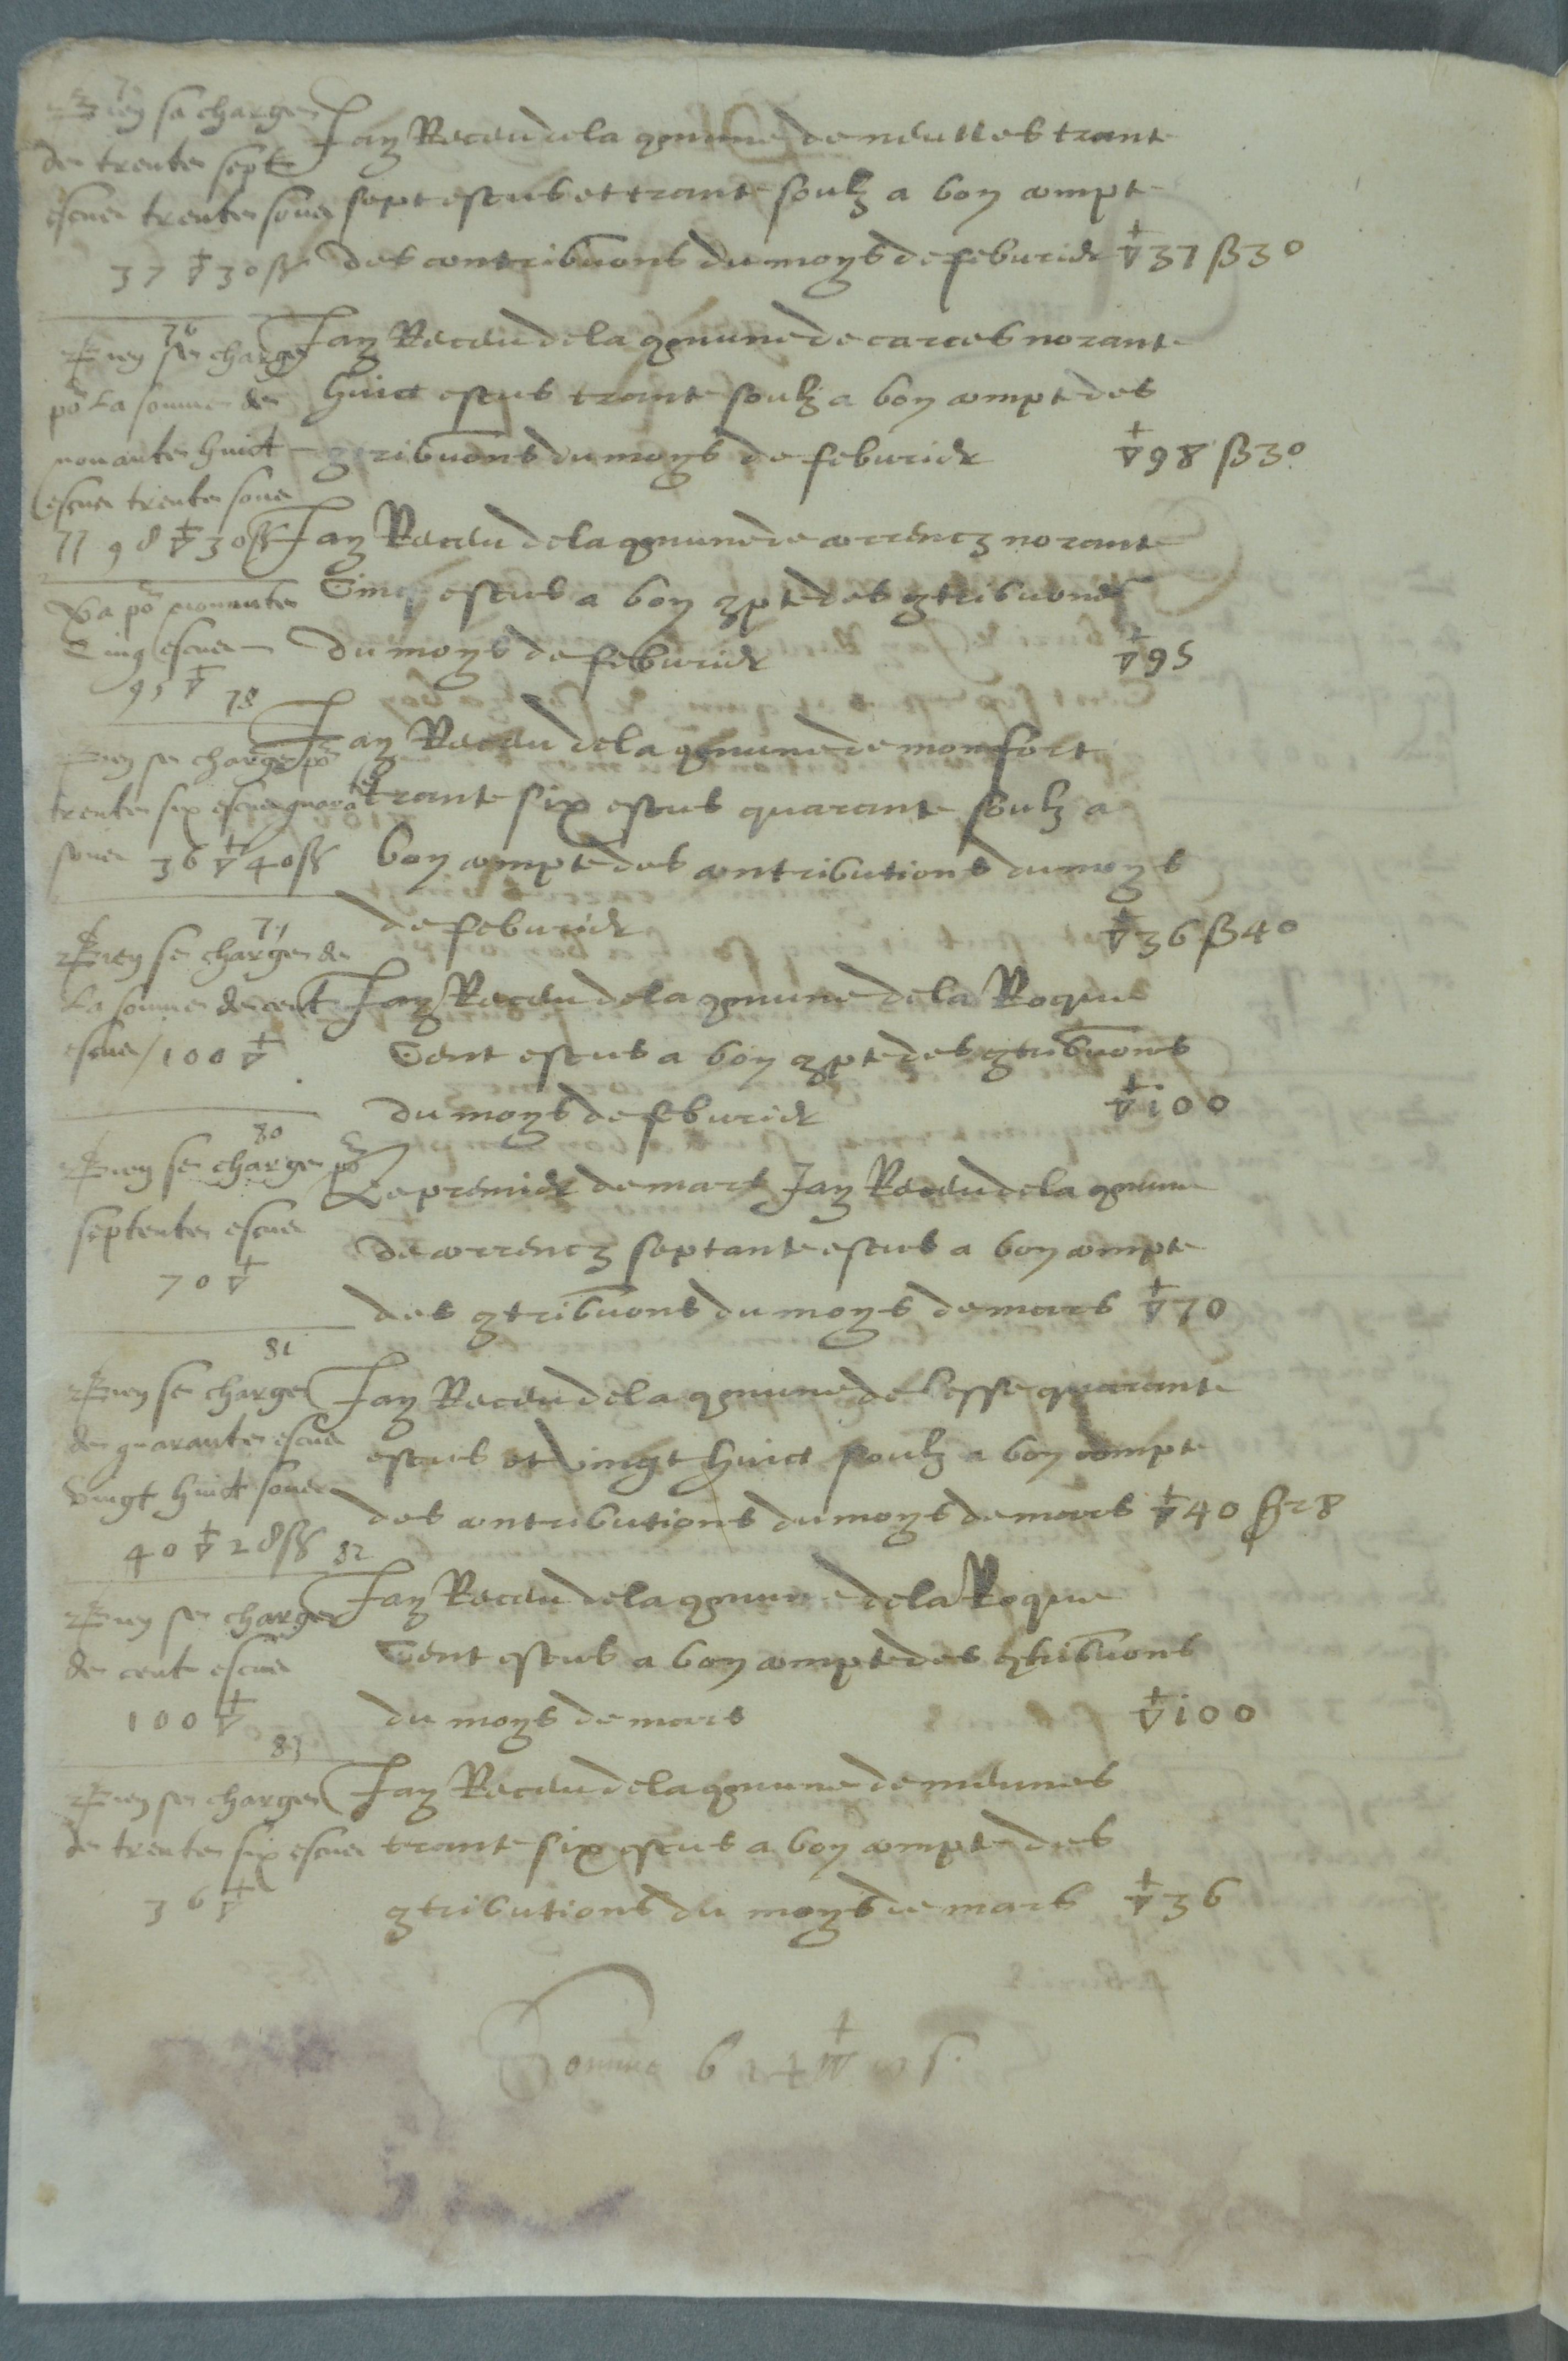 75
Icy se charge
de trente sept
escus trente souz
37 ▽ 30 ß
Jay Receu de la comune de neulles trante
sept escus et trante soulz a bon compte
des contribuons du moys de febvrier ▽37 ß30
76
Icy se charge
po la somme de
nonante huict
escus trente souz
98 ▽ 30 ß
Jay Receu de la comune de carces nonante
huict escus trante soulz a bon compte des
contribuons du moys de febvrier ▽98 ß30
77
Va po nonante
Cinq escus
95 ▽
Jay Receu de la comune de correncz nonante
Cinq escus a bon compte des contribuons
du moys de febvrier ▽95
78
Icy se charge po
trente six escus quarate
souz 36 ▽ 40 ß
Jay Receu de la comune de monfort
trante six escus quarante soulz a
bon compte des contributions du moys
de febvrier ▽36 ß40
79
Icy se charge de
La somme de cent
escus / 100 ▽
Jay Receu de la comune de la Roque
Cent escus a bon compte des contribuons
du moys de febvrier ▽100
80
Icy se charge po
septente escus
70 ▽
Le premier de mars Jay Receu de la comune
de correncz septante escus a bon compte
des contribuons du moys de mars ▽70
81
Icy se charge
de quarante escus
Vingt huict souz
40 ▽ 28 ß
Jay Receu de la comune de besse quarante
escus et vingt huict soulz a bon compte
des contributions du moys de mars ▽40 ß28
82
Icy se charge
de cent escus
100 ▽
Jay Receu de la comune de la Roque
Cent escus a bon compte des contribuons
du moys de mars ▽100
83
Icy se charge
de trente six escus
36 ▽
Jay Receu de la comune de meunes
trante six escus a bon compte des
contributions du moys de mars ▽36
Somme 614 ▽ s.